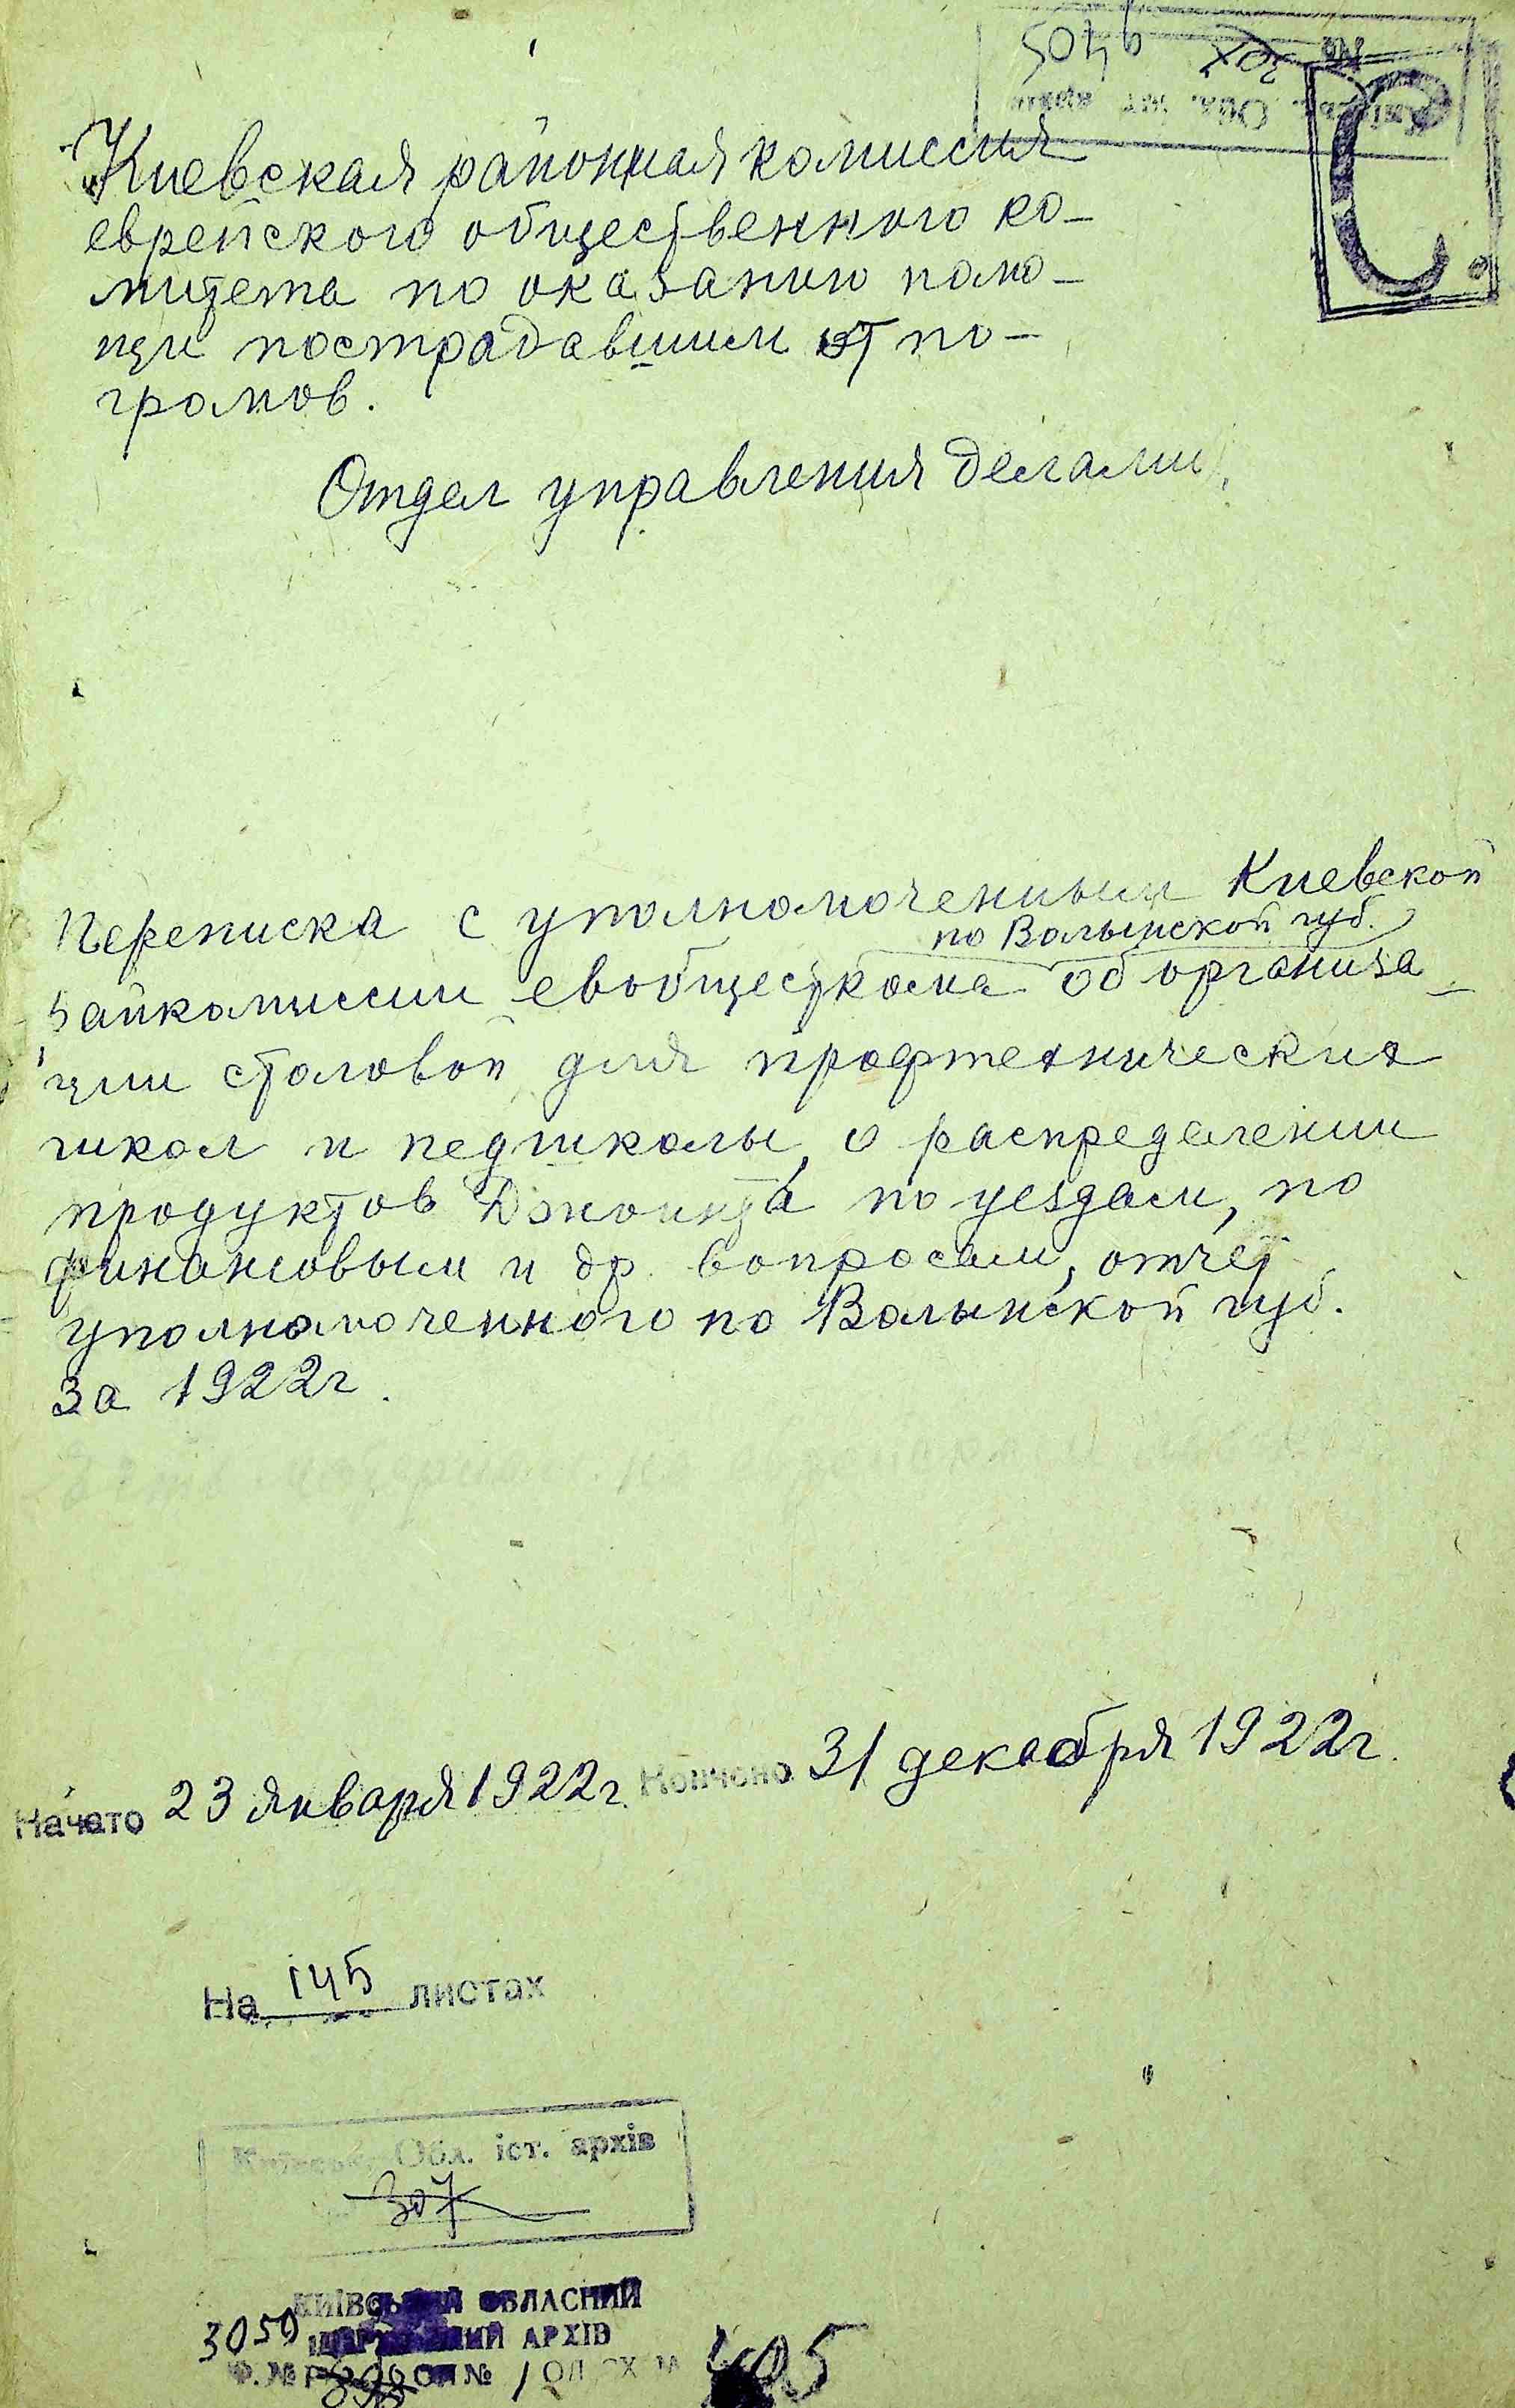 Киевская районная комиссия
еврейского общественного ко-
митета по оказанию помо-
щи пострадавшим от по-
громов.
Отдел управления делами.
Переписка с уполномоченным Киевской
по Волынской губ.
райкомиссии евобщесткома об организа-
ции столовой для профтехнических
школ и педшколы, о распределении
продуктов Джоинта по уездам, по
финансовым и др. вопросам, отчет
уполномоченного по Волынской губ.
за 1922г.
Начато 23 января 1922г. Кончено 31 декабря 1922г.
На 145 листах
Київськ. Обл. іст. архів
307
КИЇВСЬКИЙ ОБЛАСНИЙ
3050 АРХІВ
Ф. № Р-3050 ОП № 1 ОД. ЗХ. № 405